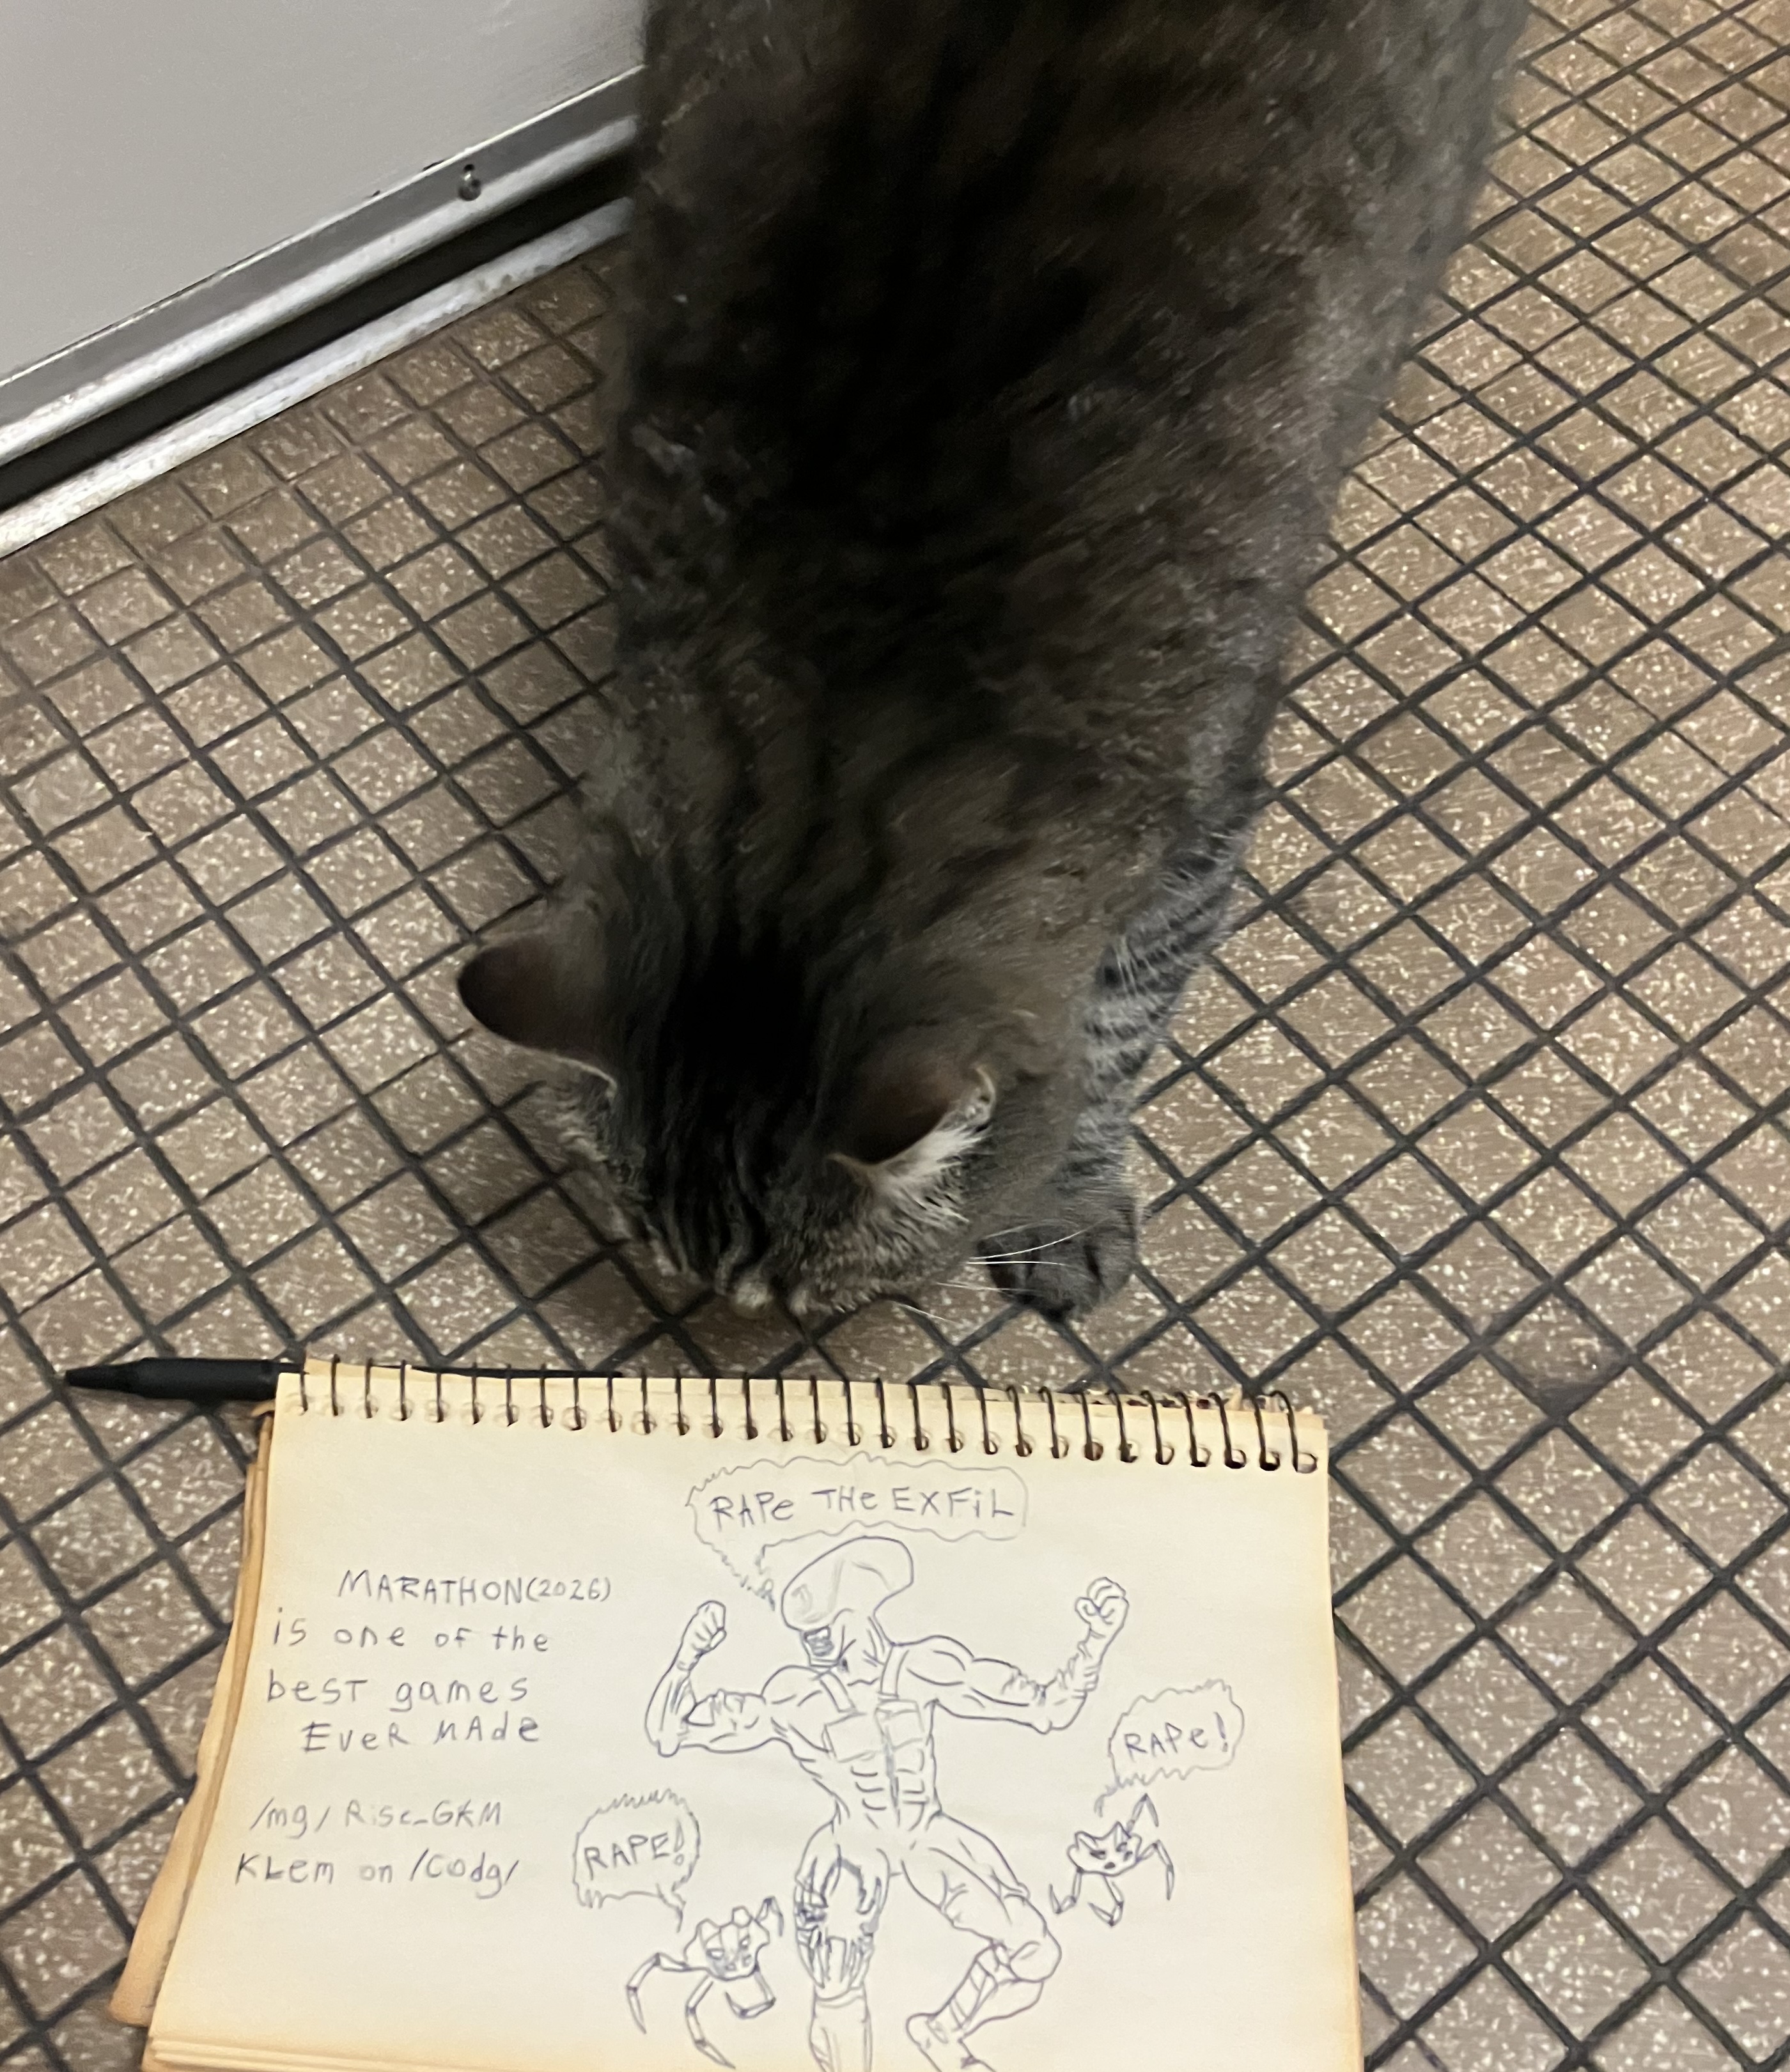 RAPe THe EXFiL
MARATHON(2026)
is one of the
besT games
EveR MAde
/mg/ Risc_GKM
KLem on /Codg/
RAPe!
RAPE!